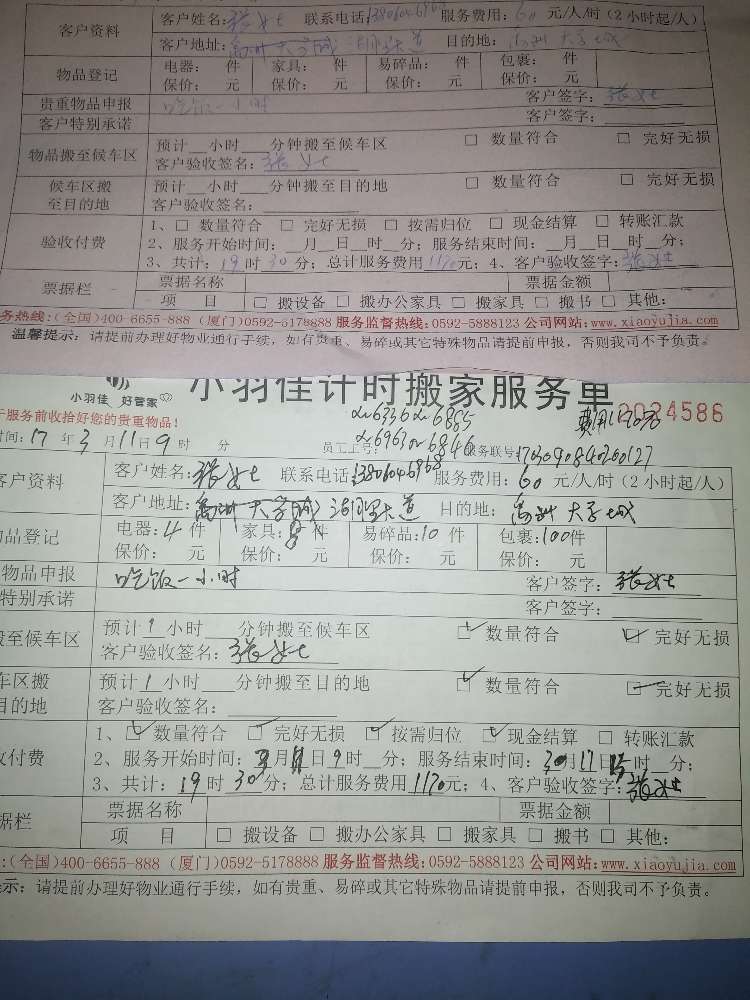 客户资料 客户姓名:张女士 联系电话 服务费用:60 元/人/时(2小时起/人)
客户地址: 大学城 大道 目的地: 大学城
物品登记 电器: 件 家具: 件 易碎品: 件 包裹: 件
保价: 元 保价: 元 保价: 元 保价: 元
贵重物品申报 吃饭一小时 客户签字:张女士
客户特别承诺 客户签字:
物品搬至候车区 预计 小时 分钟搬至候车区 □ 数量符合 □ 完好无损
客户验收签名:张女士
候车区搬至目的地 预计 小时 分钟搬至目的地 □ 数量符合 □ 完好无损
客户验收签名:
验收付费 1、□ 数量符合 □ 完好无损 □ 按需归位 □ 现金结算 □ 转账汇款
2、服务开始时间: 月 日 时 分;服务结束时间: 月 日 时 分;
3、共计:19时30分;总计服务费用1170元;4、客户验收签字:张女士
票据栏 票据名称 票据金额
项 目 □ 搬设备 □ 搬办公家具 □ 搬家具 □ 搬书 □ 其他:
务热线:(全国)400-6655-888 (厦门)0592-5178888 服务监督热线:0592-5888123 公司网站:www.xiaoyujia.com
温馨提示:请提前办理好物业通行手续,如有贵重、易碎或其它特殊物品请提前申报,否则我司不予负责。
小羽佳 好管家 小羽佳计时搬家服务单 0034586
于服务前收拾好您的贵重物品!
6336 6885
时间:17年3月11日9时 分 员工工号: 6963 6846 服务联号:
客户资料 客户姓名:张女士 联系电话 服务费用:60 元/人/时(2小时起/人)
客户地址: 大学城 大道 目的地: 大学城
物品登记 电器:4件 家具:8件 易碎品:10件 包裹:100件
保价: 元 保价: 元 保价: 元 保价: 元
物品申报 吃饭一小时 客户签字:张女士
特别承诺 客户签字:
搬至候车区 预计1小时 分钟搬至候车区 数量符合 完好无损
客户验收签名:张女士
车区搬 目的地 预计1小时 分钟搬至目的地 数量符合 完好无损
客户验收签名:
收付费 1、数量符合 完好无损 按需归位 现金结算 □ 转账汇款
2、服务开始时间:3月11日9时 分;服务结束时间:3月11日 时 分;
3、共计:19时30分;总计服务费用1170元;4、客户验收签字:张女士
据栏 票据名称 票据金额
项 目 □ 搬设备 □ 搬办公家具 □ 搬家具 □ 搬书 □ 其他:
:(全国)400-6655-888 (厦门)0592-5178888 服务监督热线:0592-5888123 公司网站:www.xiaoyujia.com
示:请提前办理好物业通行手续,如有贵重、易碎或其它特殊物品请提前申报,否则我司不予负责。